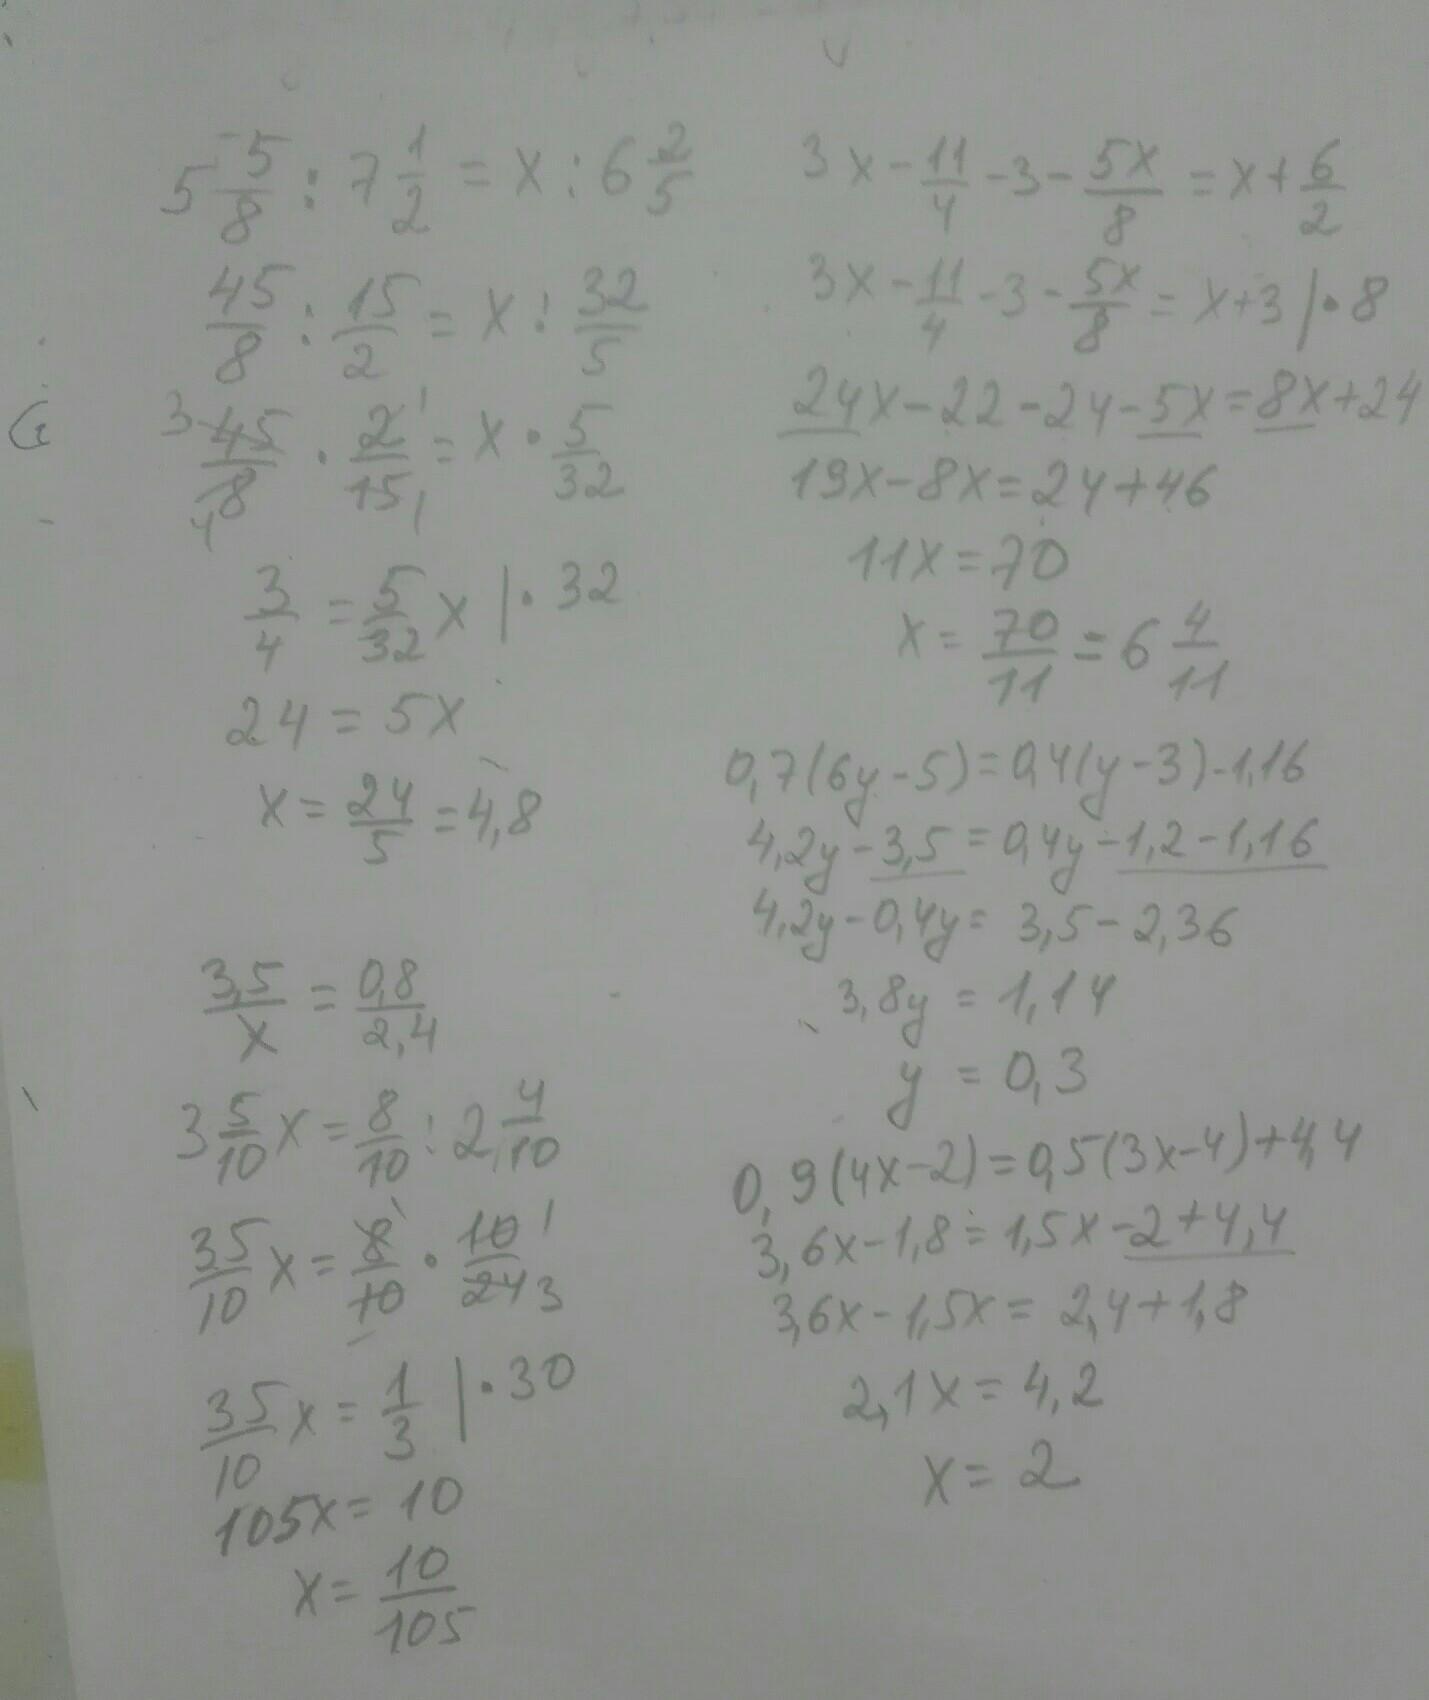 5 5/8 : 7 1/2 = x : 6 2/5
45/8 : 15/2 = x : 32/5
3 45/8 4 · 2/15 1 1 = x · 5/32
3/4 = 5/32 x | · 32
24 = 5x
x = 24/5 = 4,8
3,5/x = 0,8/2,4
3 5/10 x = 8/10 : 2 4/10
35/10 x = 8/10 1 · 10/24 1 3
35/10 x = 1/3 | · 30
105x = 10
x = 10/105
3x - 11/4 - 3 - 5x/8 = x + 6/2
3x - 11/4 - 3 - 5x/8 = x + 3 | · 8
24x - 22 - 24 - 5x = 8x + 24
19x - 8x = 24 + 46
11x = 70
x = 70/11 = 6 4/11
0,7(6y - 5) = 0,4(y - 3) - 1,16
4,2y - 3,5 = 0,4y - 1,2 - 1,16
4,2y - 0,4y = 3,5 - 2,36
3,8y = 1,14
y = 0,3
0,9(4x - 2) = 0,5(3x - 4) + 4,4
3,6x - 1,8 = 1,5x - 2 + 4,4
3,6x - 1,5x = 2,4 + 1,8
2,1x = 4,2
x = 2